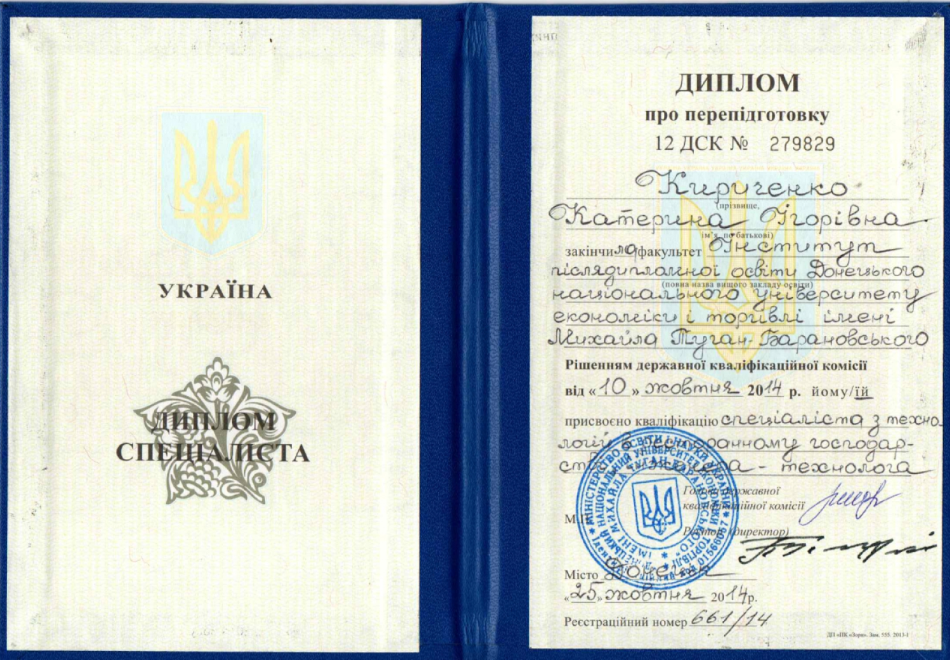 УКРАЇНА
ДИПЛОМ
СПЕЦІАЛІСТА
ДИПЛОМ
про перепідготовку
12 ДСК № 279829
Кириченко
(прізвище,
Катерина Ігорівна
(ім'я, по батькові)
закінчила факультет Інститут
післядипломної освіти Донецького
(повна назва вищого закладу освіти)
національного університету
економіки і торгівлі імені
Михайла Туган-Барановського
Рішенням державної кваліфікаційної комісії
від «10» жовтня 2014 р. йому/їй
присвоєно кваліфікацію спеціаліста з техно
логії в ресторанному господар-
стві - технолога
Голова державної
кваліфікаційної комісії
М.П.
Ректор (директор)
Місто Донецьк
«25» жовтня 2014р.
Реєстраційний номер 661/14
ДП «ПК «Зоря». Зам. 555. 2013-І
МІНІСТЕРСТВО ОСВІТИ І НАУКИ УКРАЇНИ